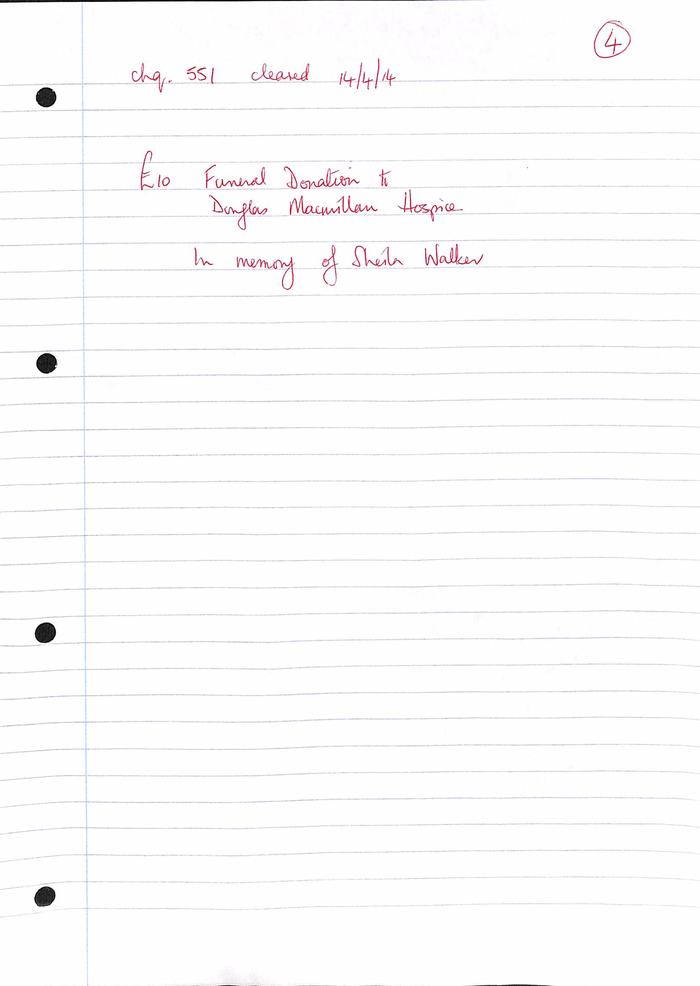 4
chq. 551 cleared 14/4/14
£10 Funeral Donation to
Douglas Macmillan Hospice
In memory of Sheila Walker